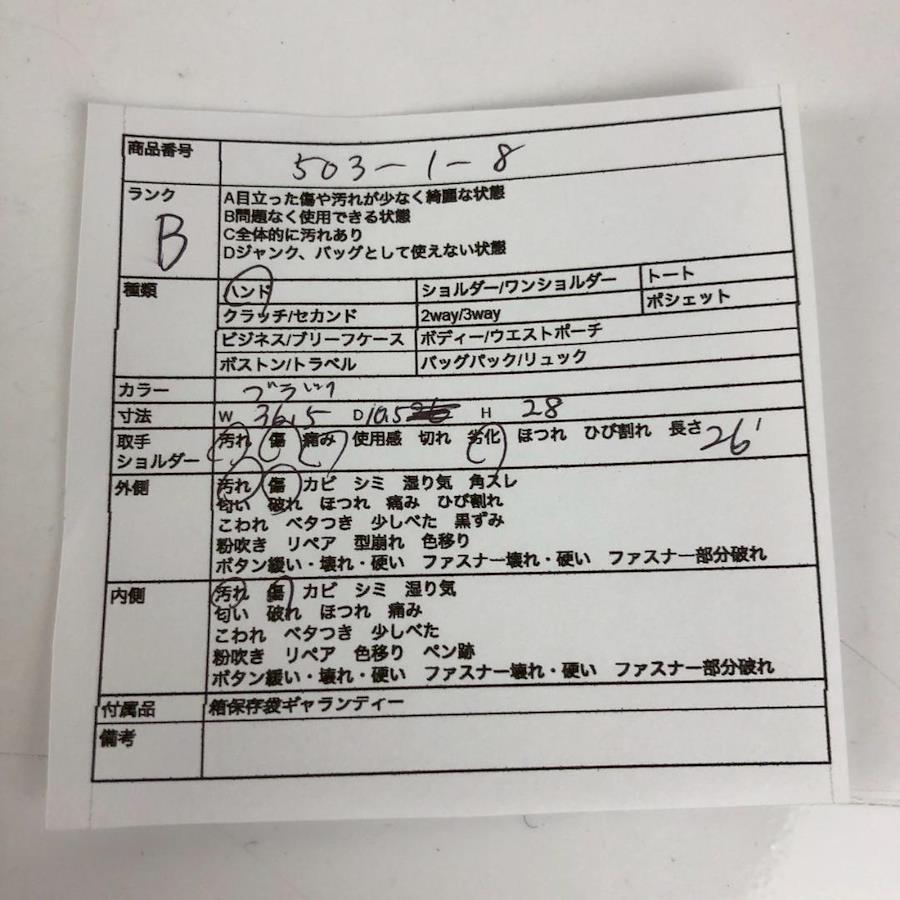 商品番号 503-1-8
ランク B
A目立った傷や汚れが少なく綺麗な状態
B問題なく使用できる状態
C全体的に汚れあり
Dジャンク、バッグとして使えない状態
種類 ハンド ショルダー/ワンショルダー トート
クラッチ/セカンド 2way/3way ポシェット
ビジネス/ブリーフケース ボディー/ウエストポーチ
ボストン/トラベル バッグパック/リュック
カラー ブラック
寸法 W 36.5 D 10.5 H 28
取手 汚れ 傷 痛み 使用感 切れ 劣化 ほつれ ひび割れ 長さ 26
ショルダー
外側 汚れ 傷 カビ シミ 湿り気 角スレ
匂い 破れ ほつれ 痛み ひび割れ
こわれ ベタつき 少しべた 黒ずみ
粉吹き リペア 型崩れ 色移り
ボタン緩い・壊れ・硬い ファスナー壊れ・硬い ファスナー部分破れ
内側 汚れ 傷 カビ シミ 湿り気
匂い 破れ ほつれ 痛み
こわれ ベタつき 少しべた
粉吹き リペア 色移り ペン跡
ボタン緩い・壊れ・硬い ファスナー壊れ・硬い ファスナー部分破れ
付属品 箱保存袋ギャランティー
備考